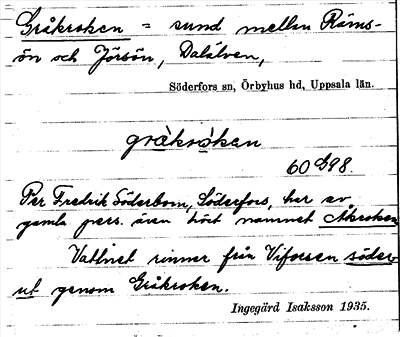 Gråkroken = sund mellan Räms-
ön och Jörsön, Dalälven,
Söderfors sn, Örbyhus hd, Uppsala län.
gråkrokan
60 G98.
Per Fredrik Söderbom, Söderfors, har av
gamla pers. även hört namnet Åkroken
Vattnet rinner från Viforsen söder
ut genom Gråkroken.
Ingegärd Isaksson 1935.